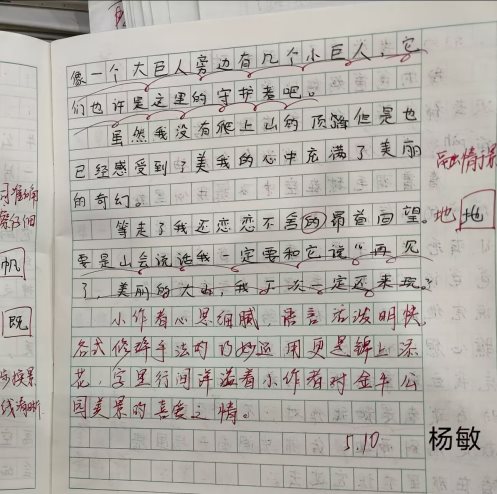 像一个大巨人旁边有几个小巨人，它
们也许是这里的守护者吧。
虽然我没有爬上山的顶峰但是也
已经感受到了美我的心中充满了美丽
的奇幻。
等走了我还恋恋不舍的昂首回望。
要是山会说话我一定要和它说“再见
了，美丽的大山，我下次一定还来玩。”
小作者心思细腻，语言活泼明快，
各式修辞手法的巧妙运用更是锦上添
花，字里行间洋溢着小作者对金牛公
园美景的喜爱之情。
5.10
杨敏
地
地
帆
既
步换景
线清晰